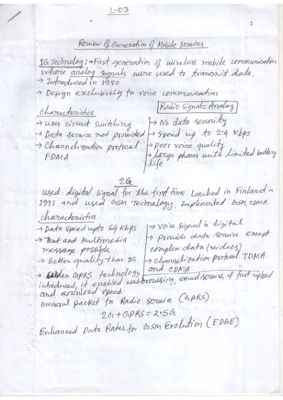 L-03
Review of Generation of Mobile services
1G Technology:→ First generation of wireless mobile communication
where analog signals were used to transmit data.
→ Introduced in 1980
→ Design exclusively for voice communication
Radio signal = Analog
Characteristics
→ Uses circuit switching
→ Data service not provided
→ Channelization protocol
FDMA
→ No data security
→ Speed up to 2.4 kbps
→ poor voice quality
→ Large phones with limited battery
life
2G
used digital signal for the first time. Lunched in Finland in
1991 and used GSM technology. Implemented GSM, CDMA.
characteristics
→ Data speed upto 64 kbps
→ Text and multimedia
message possible
→ Better quality than 1G
→ voice signal is digital
→ Provide data service except
complex data (videos)
→ Channelization protocol TDMA
and CDMA
→ GPRS technology
introduced, it enabled web browsing, email service, & fast upload
and download speed.
General packet for Radio service (GPRS)
2G + GPRS = 2.5G
Enhanced Data Rates for GSM Evolution (EDGE)